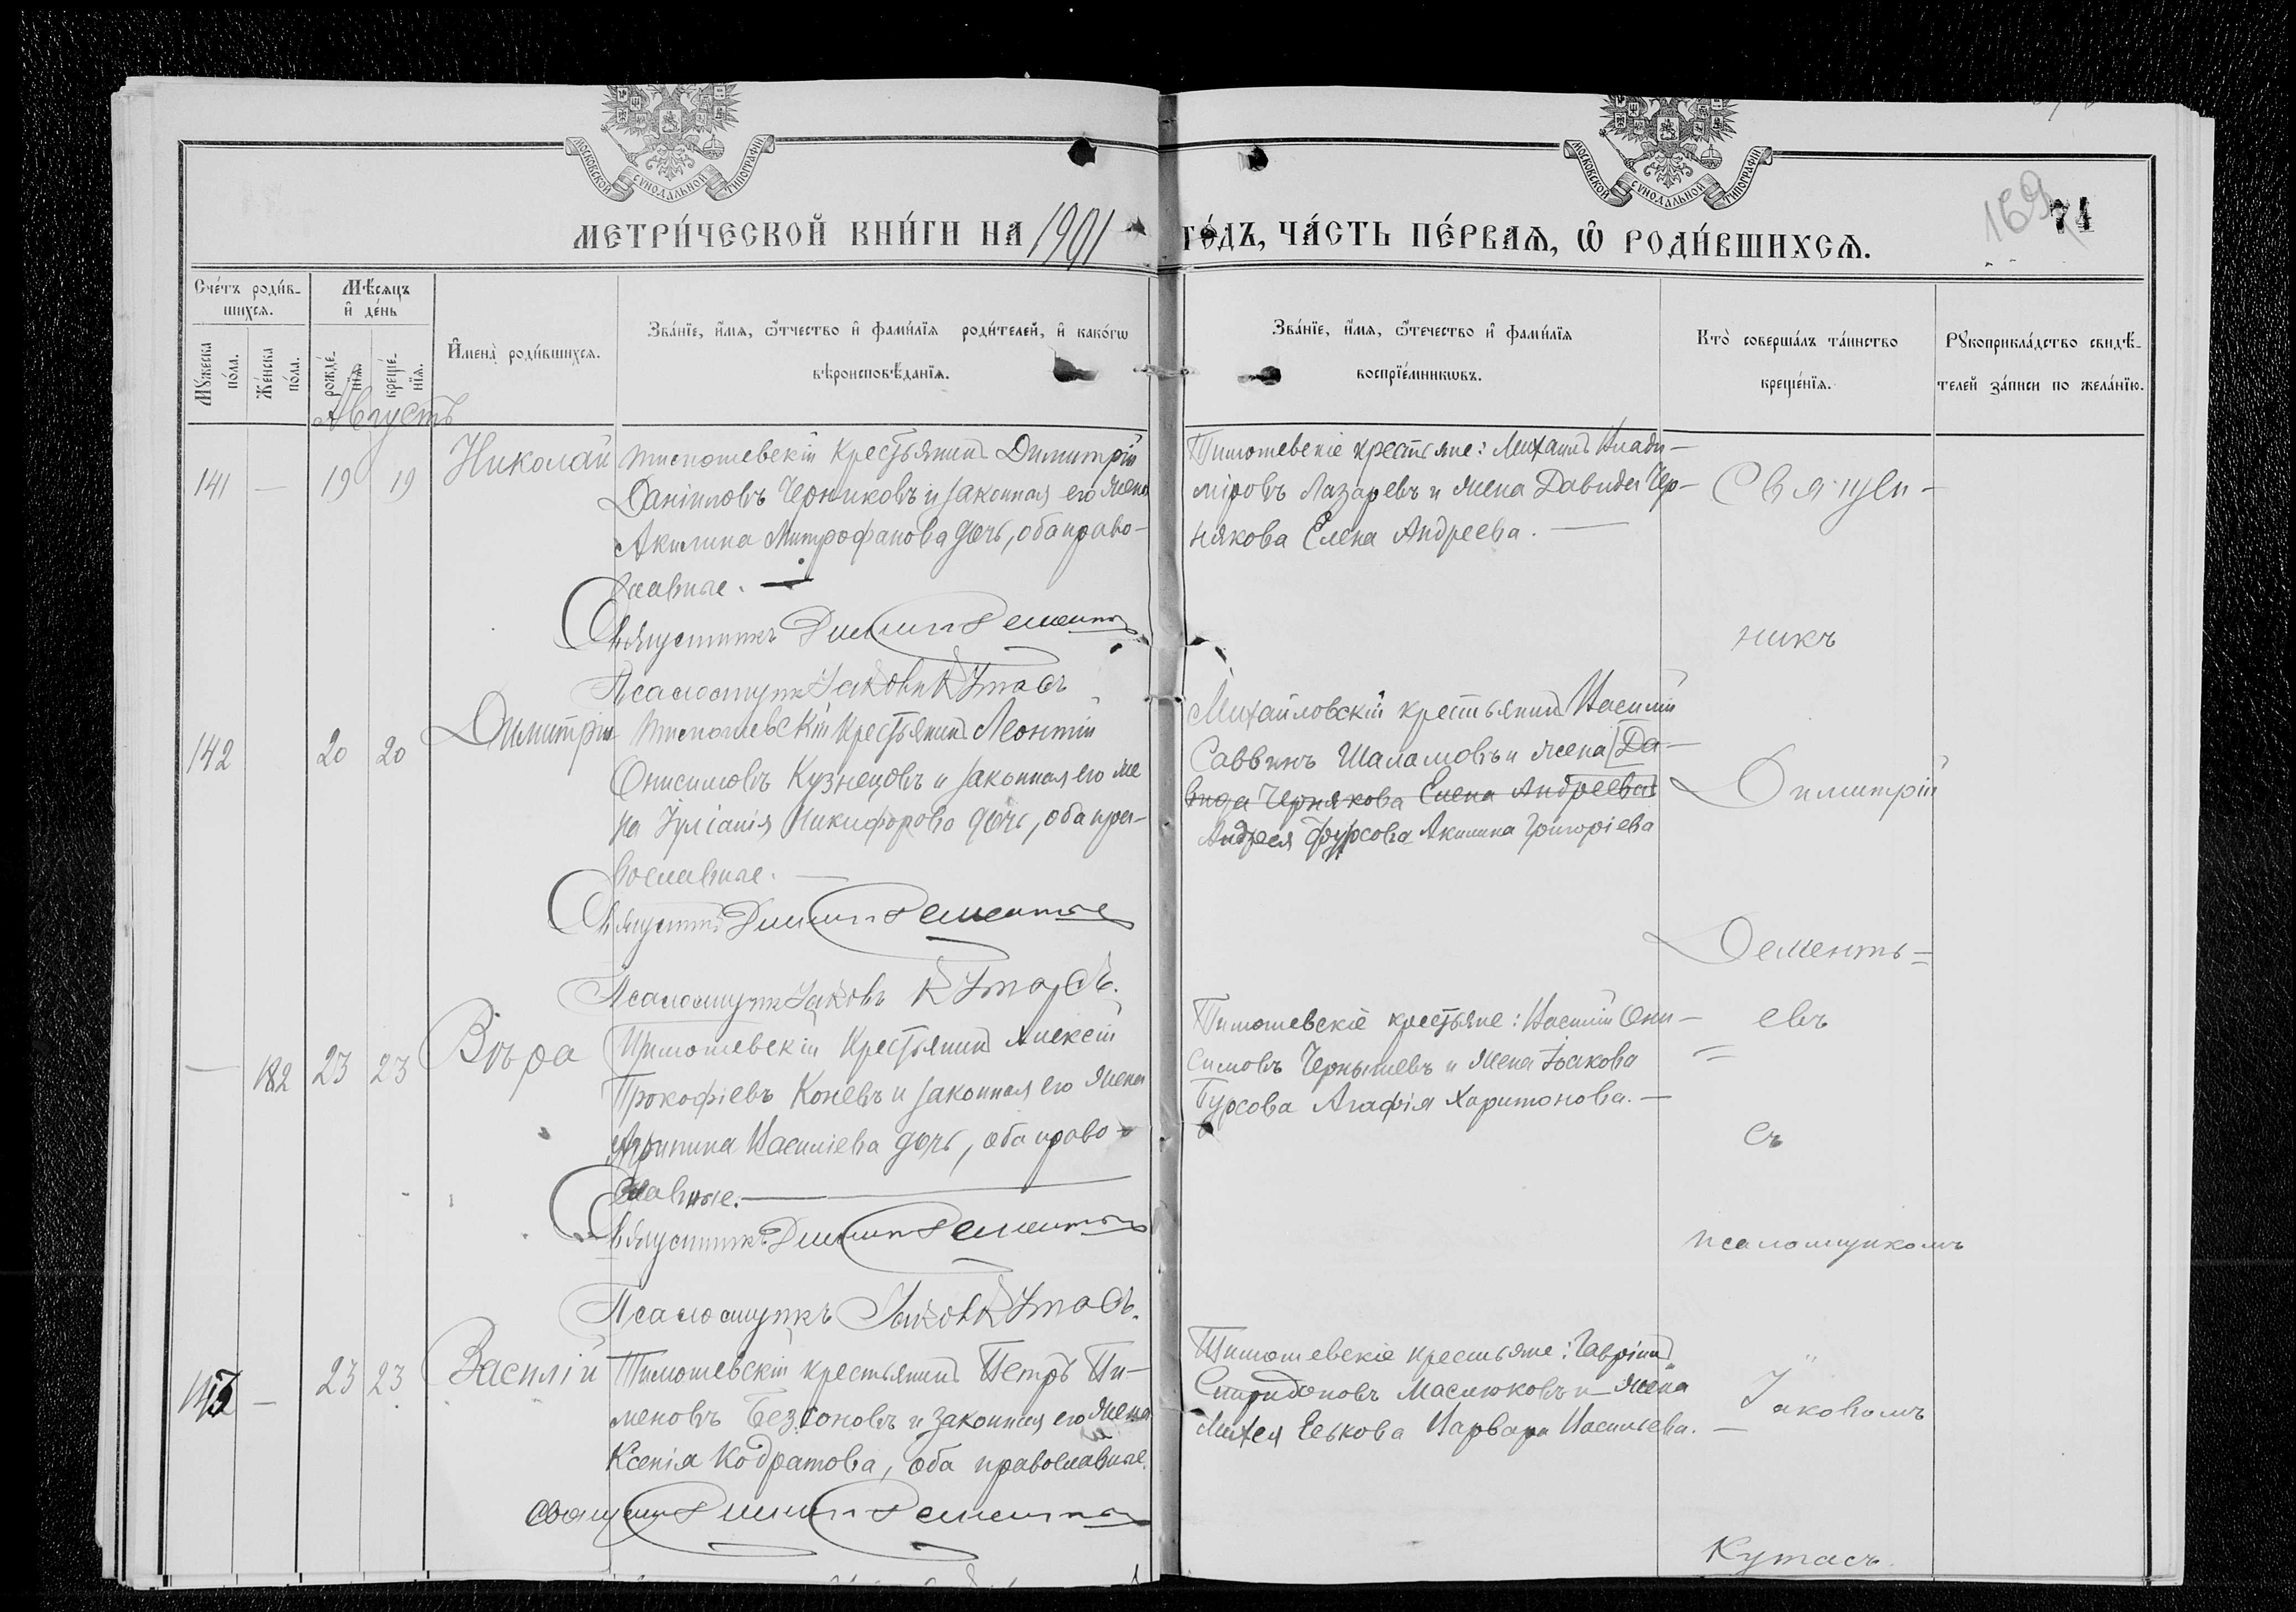 МОСКОВСКОЙ СУНОДАЛЬНОЙ ТИПОГРАФІИ
МОСКОВСКОЙ СУНОДАЛЬНОЙ ТИПОГРАФІИ
МЕТРИ́ЧЕСКОЙ КНИ́ГИ НА 1901 ГО́ДЪ, ЧА́СТЬ ПЕ́РВАѦ, Ѡ РОДИ́ВШИХСѦ.
169
71
Сче́тъ роди́в-
шихсѧ.
Мѣ́сѧцъ
и҆ де́нь
Мꙋ́жеска
по́ла.
Же́нска
по́ла.
рожде́-
нїѧ.
креще́-
нїѧ.
И҆мена̀ роди́вшихсѧ.
Зва́нїе, и҆́мѧ, ѻ҆́тчество и҆ фами́лїѧ роди́телей, и҆ како́гѡ
вѣроисповѣ́данїѧ.
Зва́нїе, и҆́мѧ, ѻ҆́течество и҆ фами́лїѧ
воспрїе́мникѡвъ.
Кто̀ соверша́лъ та́инство
креще́нїѧ.
Рꙋкоприкла́дство свидѣ́-
телей за́писи по жела́нїю.
Августъ
141 — 19 19 Николай
Тимошевскій крестьянинъ Димитрій
Даніиловъ Черниковъ и законная его жена
Акилина Митрофанова дочь, оба право-
славные. —
Священникъ Димитрій Дементьевъ
Псаломщикъ Іаковъ Кутасъ
Тимошевскіе крестьяне: Михаилъ Влади-
міровъ Лазаревъ и жена Давида Чер-
някова Елена Андреева. —
142 20 20 Димитрій
Тимошевскій крестьянинъ Леонтій
Онисимовъ Кузнецовъ и законная его же
на Іуліанія Никифорова дочь, оба пра-
вославные. —
Священникъ Димитрій Дементьевъ
Псаломщикъ Іаковъ Кутасъ.
Михайловскій крестьянинъ Василій
Саввинъ Шаламовъ и жена Да-
вида Чернякова Елена Андреева
Андрея Фурсова Акилина Григоріева
— 182 23 23 Вѣра
Тимошевскій крестьянинъ Алексій
Прокофіевъ Коневъ и законная его жена
Агрипина Василіева дочь, оба право-
славные. —
Священникъ Димитрій Дементьевъ
Псаломщикъ Іаковъ Кутасъ.
Тимошевскіе крестьяне: Василій Они-
симовъ Чернышевъ и жена Іакова
Бурсова Агафія Харитонова. —
143 — 23 23 Василій
Тимошевскій крестьянинъ Петръ Пи-
меновъ Безсоновъ и законная его жена
Ксенія Кодратова, оба православные.
Священникъ Димитрій Дементьевъ
Тимошевскіе крестьяне: Гавріилъ
Спиридоновъ Маслюковъ и жена
Михея Еськова Варвара Васильева. —
Священ-
никъ
Димитрій
Дементь-
евъ
съ
псаломщикомъ
Іаковомъ
Кутасъ